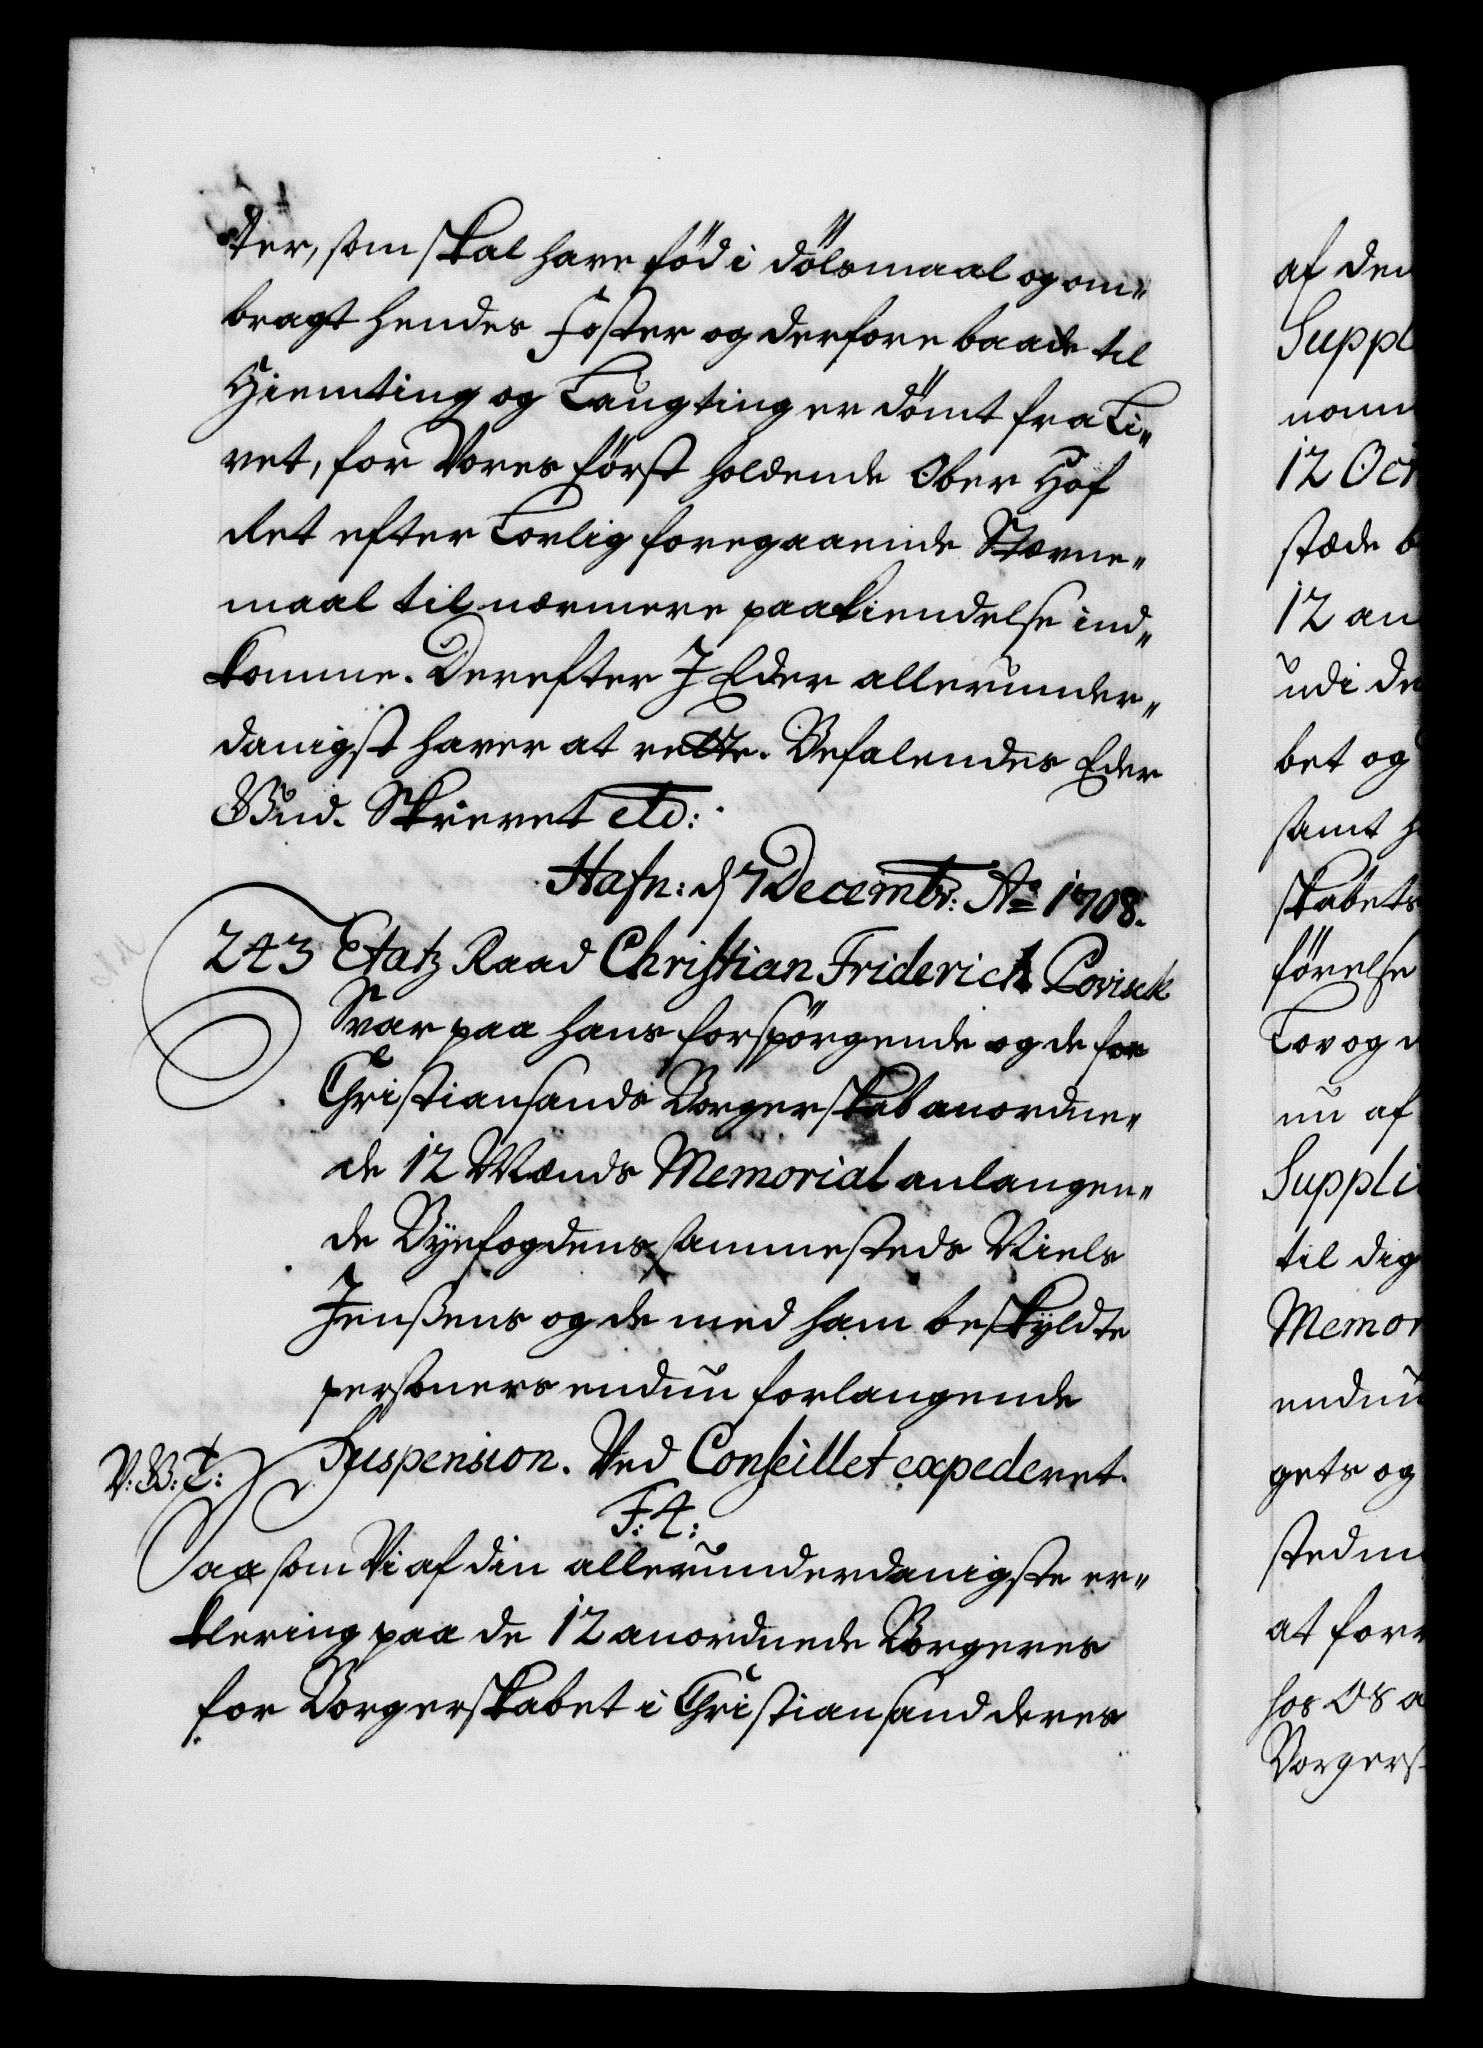 ter, som skal have föd i dölsmaal og om-
bragt hendes Foster og derfore baade til
Hiemting og Laugting er dömt fra Li-
vet, for Vores först holdende Ober Hof
Ret efter Lovlig foregaaende Stævne-
maal til nærmere paakiendelse ind-
komme. Derefter I Eder allerunder-
danigst haver at rette. Befalendes Eder
Gud. Skrevet etc:
Hafn: d 7 Decembr: Ao 1708.
243 Etatz Raad Christian Friderich Powisch
Svar paa hans forspörgende og de for
Christiansands Borgerskab anordne-
de 12 Mænds Memorial anlangen-
de Byefogdens sammesteds Niels
Jenßens og de med ham beskyldte
personers endnu forlangende
Suspension. Ved Conseillet expederet.
V: G: T:
F: 4:
Saasom Vi af din allerunderdanigste er-
klering paa de 12 anordnede Borgeres
for Borgerskabet i Christiansand deres
af den
Suppl
12 Oct
stæde b
12 an
udi de
bet og
samt h
skabets
förelse
Lov og
nu af
Suppli
til dig
Memor
endnu
gets og
sted m
at for
hos os a
Borgers